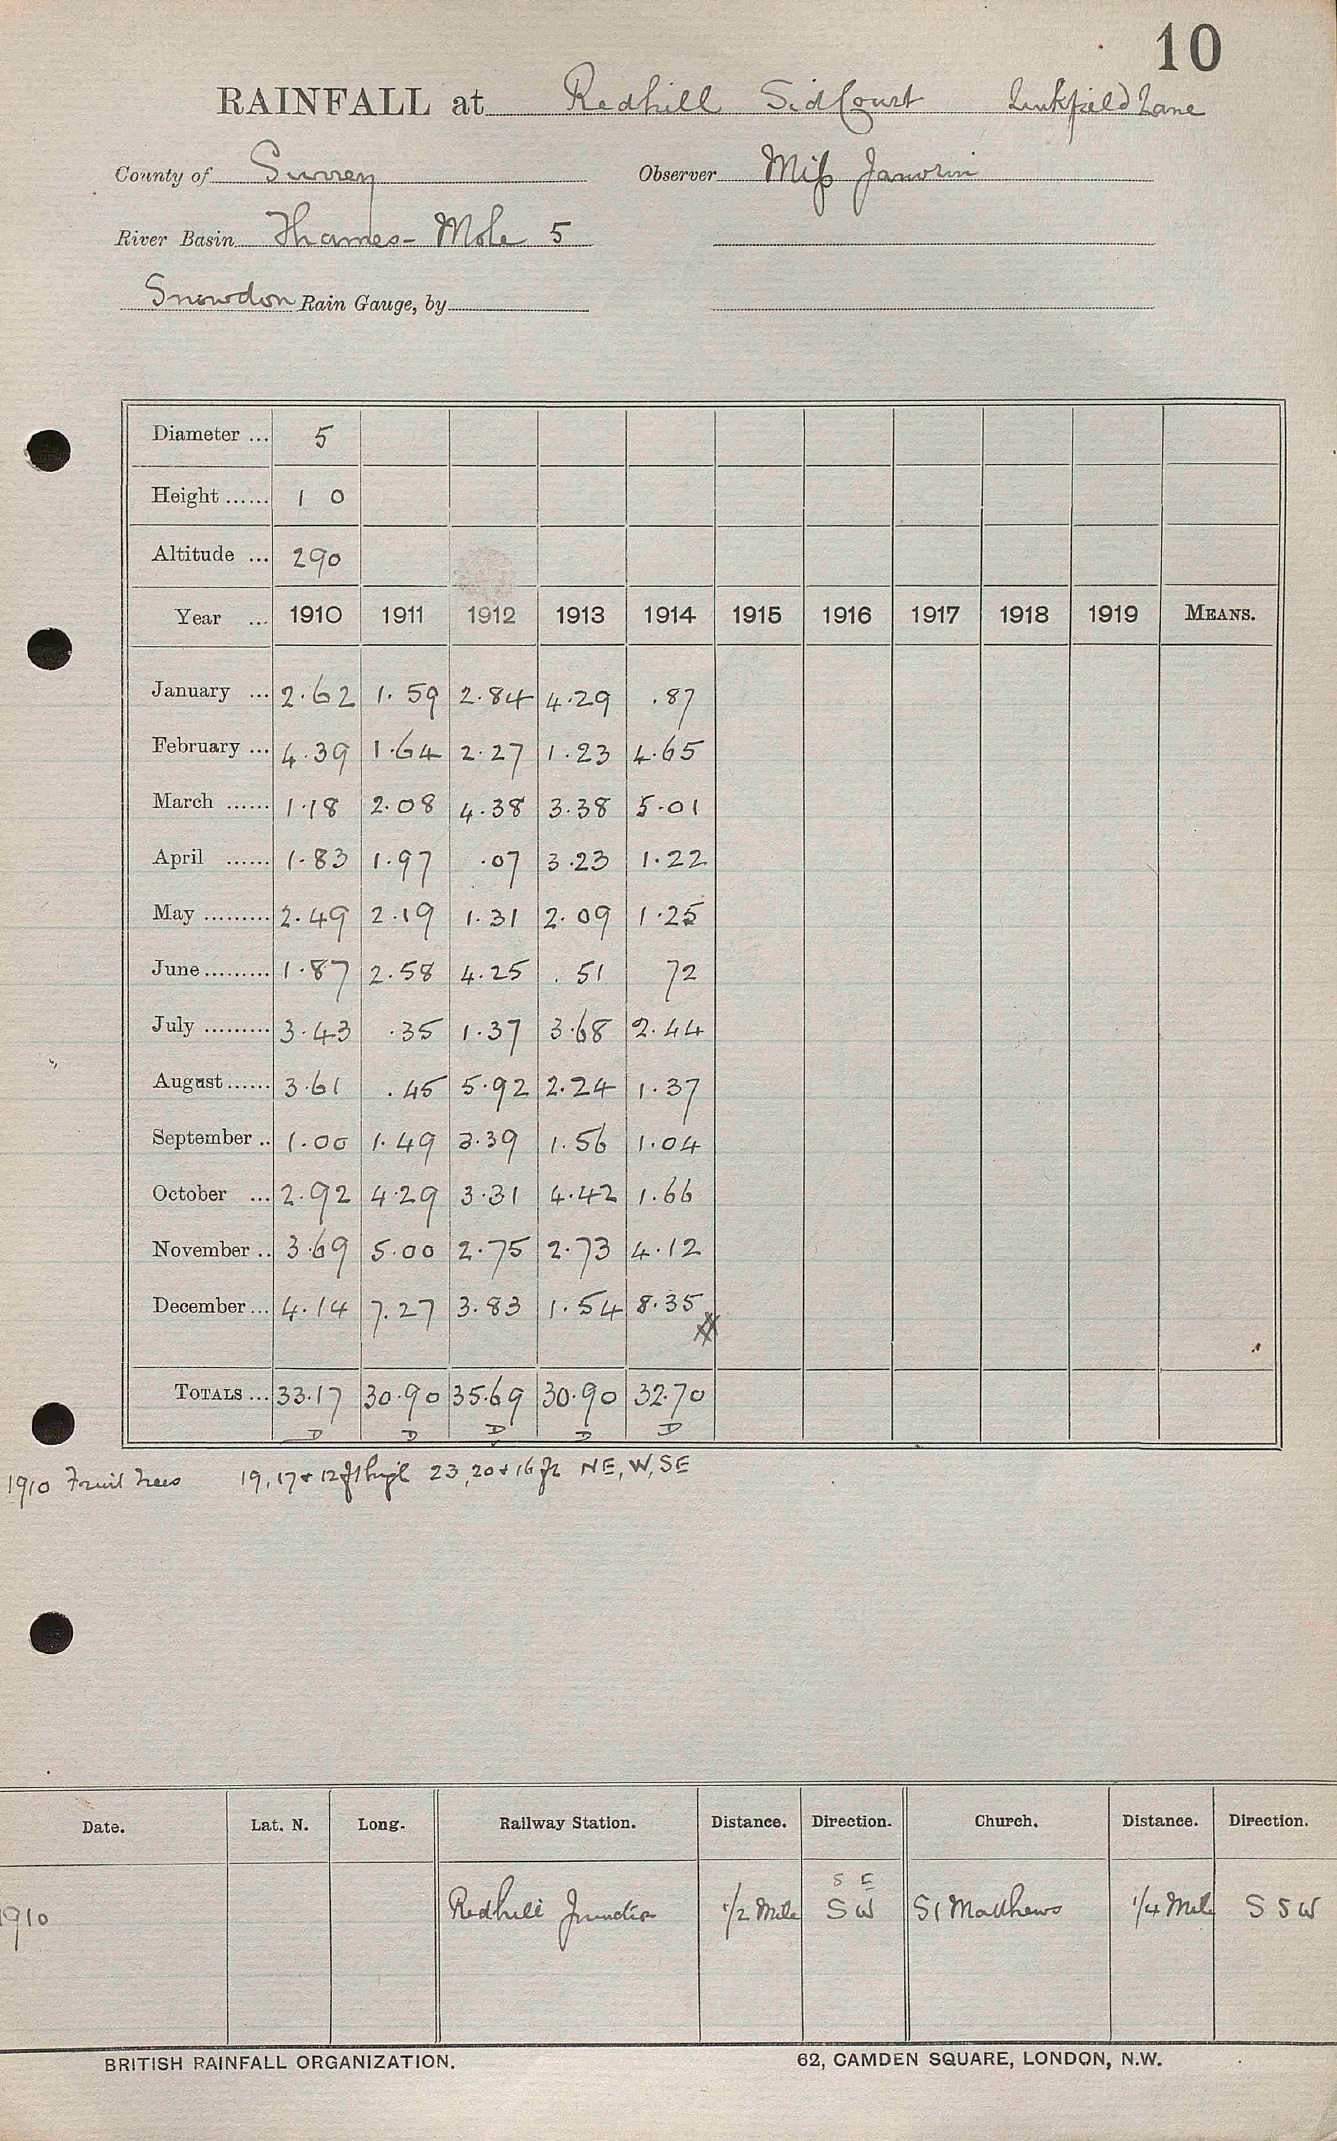 10
RAINFALL at Redhill Sid Court Linkfield Lane
County of Surrey Observer Miss Janvrin
River Basin Thames - Mole 5
Snowdon Rain Gauge, by
Diameter ... 5
Height ...... 1 0
Altitude ... 290
Year ... 1910 1911 1912 1913 1914 1915 1916 1917 1918 1919 MEANS.
January ... 2.62 1.59 2.84 4.29 .87
February ... 4.39 1.64 2.27 1.23 4.65
March ...... 1.18 2.08 4.38 3.38 5.01
April ...... 1.83 1.97 .07 3.23 1.22
May ......... 2.49 2.19 1.31 2.09 1.25
June ......... 1.87 2.58 4.25 .51 72
July ......... 3.43 .35 1.37 3.68 2.44
August ...... 3.61 .45 5.92 2.24 1.37
September .. 1.00 1.49 3.39 1.56 1.04
October ... 2.92 4.29 3.31 4.42 1.66
November .. 3.69 5.00 2.75 2.73 4.12
December ... 4.14 7.27 3.83 1.54 8.35
TOTALS ... 33.17 30.90 35.69 30.90 32.70
D D D D D
1910 Fruit trees 19, 17 + 12 ft high 23, 20 + 16 ft NE, W, SE
Date. Lat. N. Long. Railway Station. Distance. Direction. Church. Distance. Direction.
S E
1910 Redhill Junction 1/2 Mile S W St Matthews 1/4 Mile S S W
BRITISH RAINFALL ORGANIZATION. 62, CAMDEN SQUARE, LONDON, N.W.